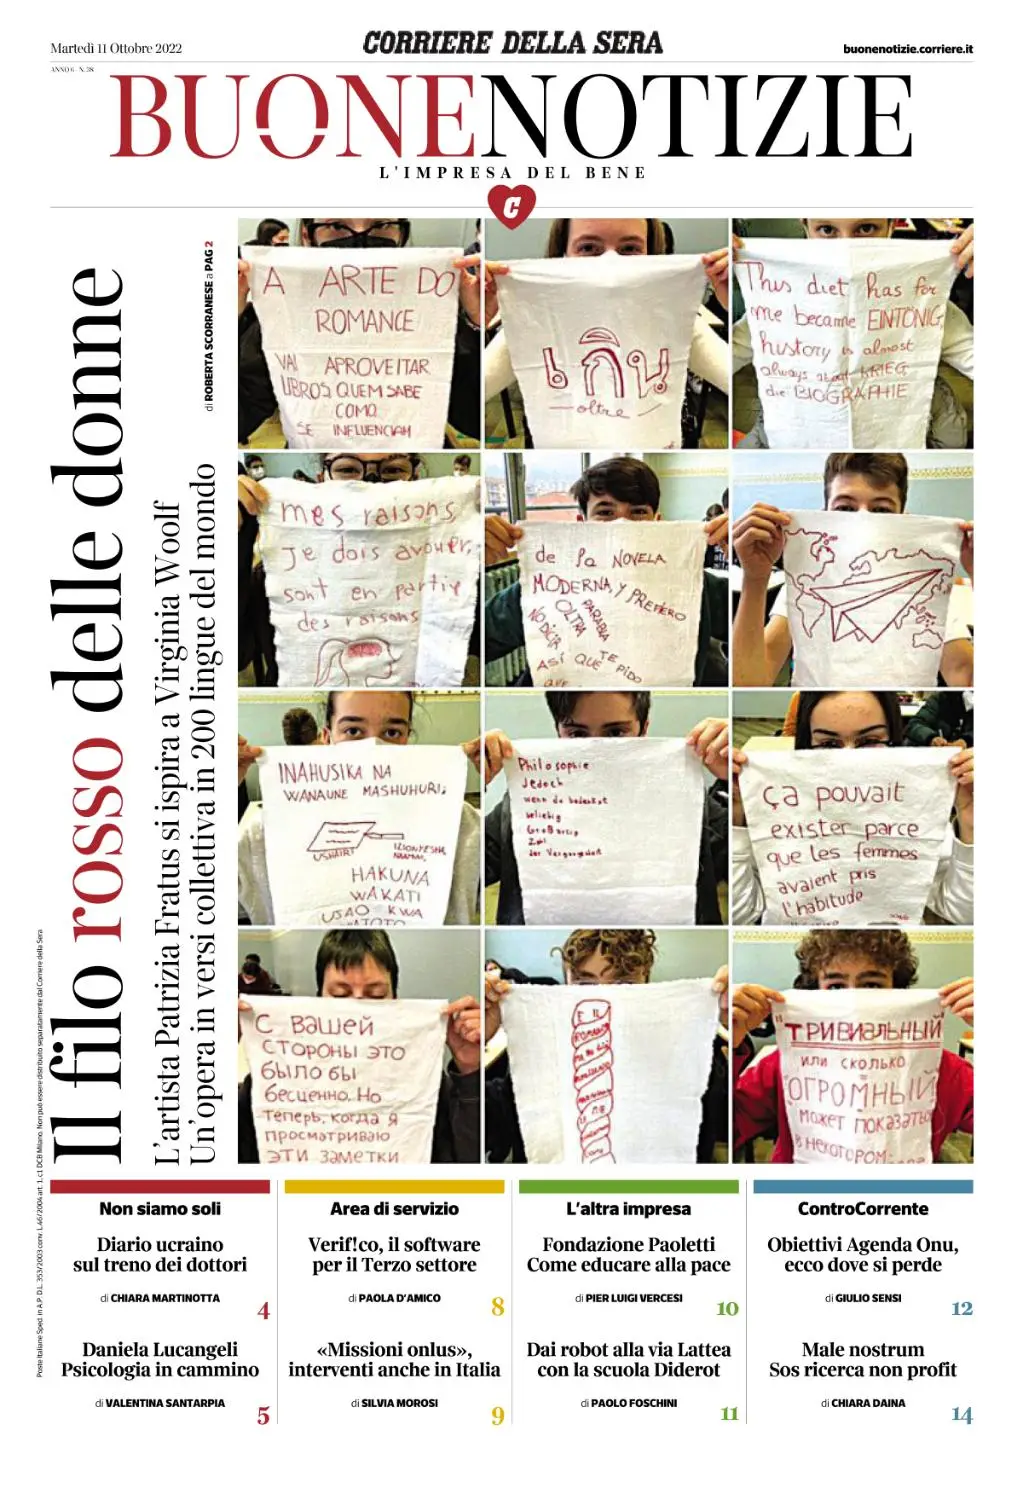 Martedì 11 Ottobre 2022
CORRIERE DELLA SERA
buonenotizie.corriere.it
ANNO 6 - N. 38
BUONENOTIZIE
L'IMPRESA DEL BENE
C
Il filo rosso delle donne
L'artista Patrizia Fratus si ispira a Virginia Woolf
Un'opera in versi collettiva in 200 lingue del mondo
di ROBERTA SCORRANESE a PAG 2
A ARTE DO
ROMANCE
VAI APROVEITAR
LIBROS QUEM SABE
COMO
SE INFLUENCIAM
เกิน
oltre
This diet has for
me became EINTÖNIG,
history is almost
always about KRIEG
die BIOGRAPHIE
mes raisons,
je dois avouer,
sont en partie
des raisons
de la NOVELA
MODERNA, Y PREFIERO
NO DECIR
OLTRA
PARABIA
ASÍ QUE TE PIDO
QUE
INAHUSIKA NA
WANAUNE MASHUHURI;
USHAIRI
HAKUNA
WAKATI
UJAO KWA
WATOTO
Philosophie
Jedoch
wenn du bedenkst
beliebig
Großartig
Zahl
der Vergangenheit
ça pouvait
exister parce
que les femmes
avaient pris
l'habitude
С ВАШЕЙ
СТОРОНЫ ЭТО
БЫЛО БЫ
бесценно. Но
теперь, когда я
просматриваю
ЭТИ ЗАМЕТКИ
E IL
ROMANZO
"ТРИВИАЛЬНЫЙ"
ИЛИ СКОЛЬКО
"ОГРОМНЫЙ"
МОЖЕТ ПОКАЗАТЬСЯ
В НЕКОТОРОМ
Non siamo soli
Diario ucraino
sul treno dei dottori
di CHIARA MARTINOTTA
4
Daniela Lucangeli
Psicologia in cammino
di VALENTINA SANTARPIA
5
Area di servizio
Verif!co, il software
per il Terzo settore
di PAOLA D'AMICO
8
«Missioni onlus»,
interventi anche in Italia
di SILVIA MOROSI
9
L'altra impresa
Fondazione Paoletti
Come educare alla pace
di PIER LUIGI VERCESI
10
Dai robot alla via Lattea
con la scuola Diderot
di PAOLO FOSCHINI
11
ControCorrente
Obiettivi Agenda Onu,
ecco dove si perde
di GIULIO SENSI
12
Male nostrum
Sos ricerca non profit
di CHIARA DAINA
14
Poste Italiane Sped. in A.P. D.L. 353/2003 conv. L.46/2004 art. 1, c1 DCB Milano. Non può essere distribuito separatamente dal Corriere della Sera